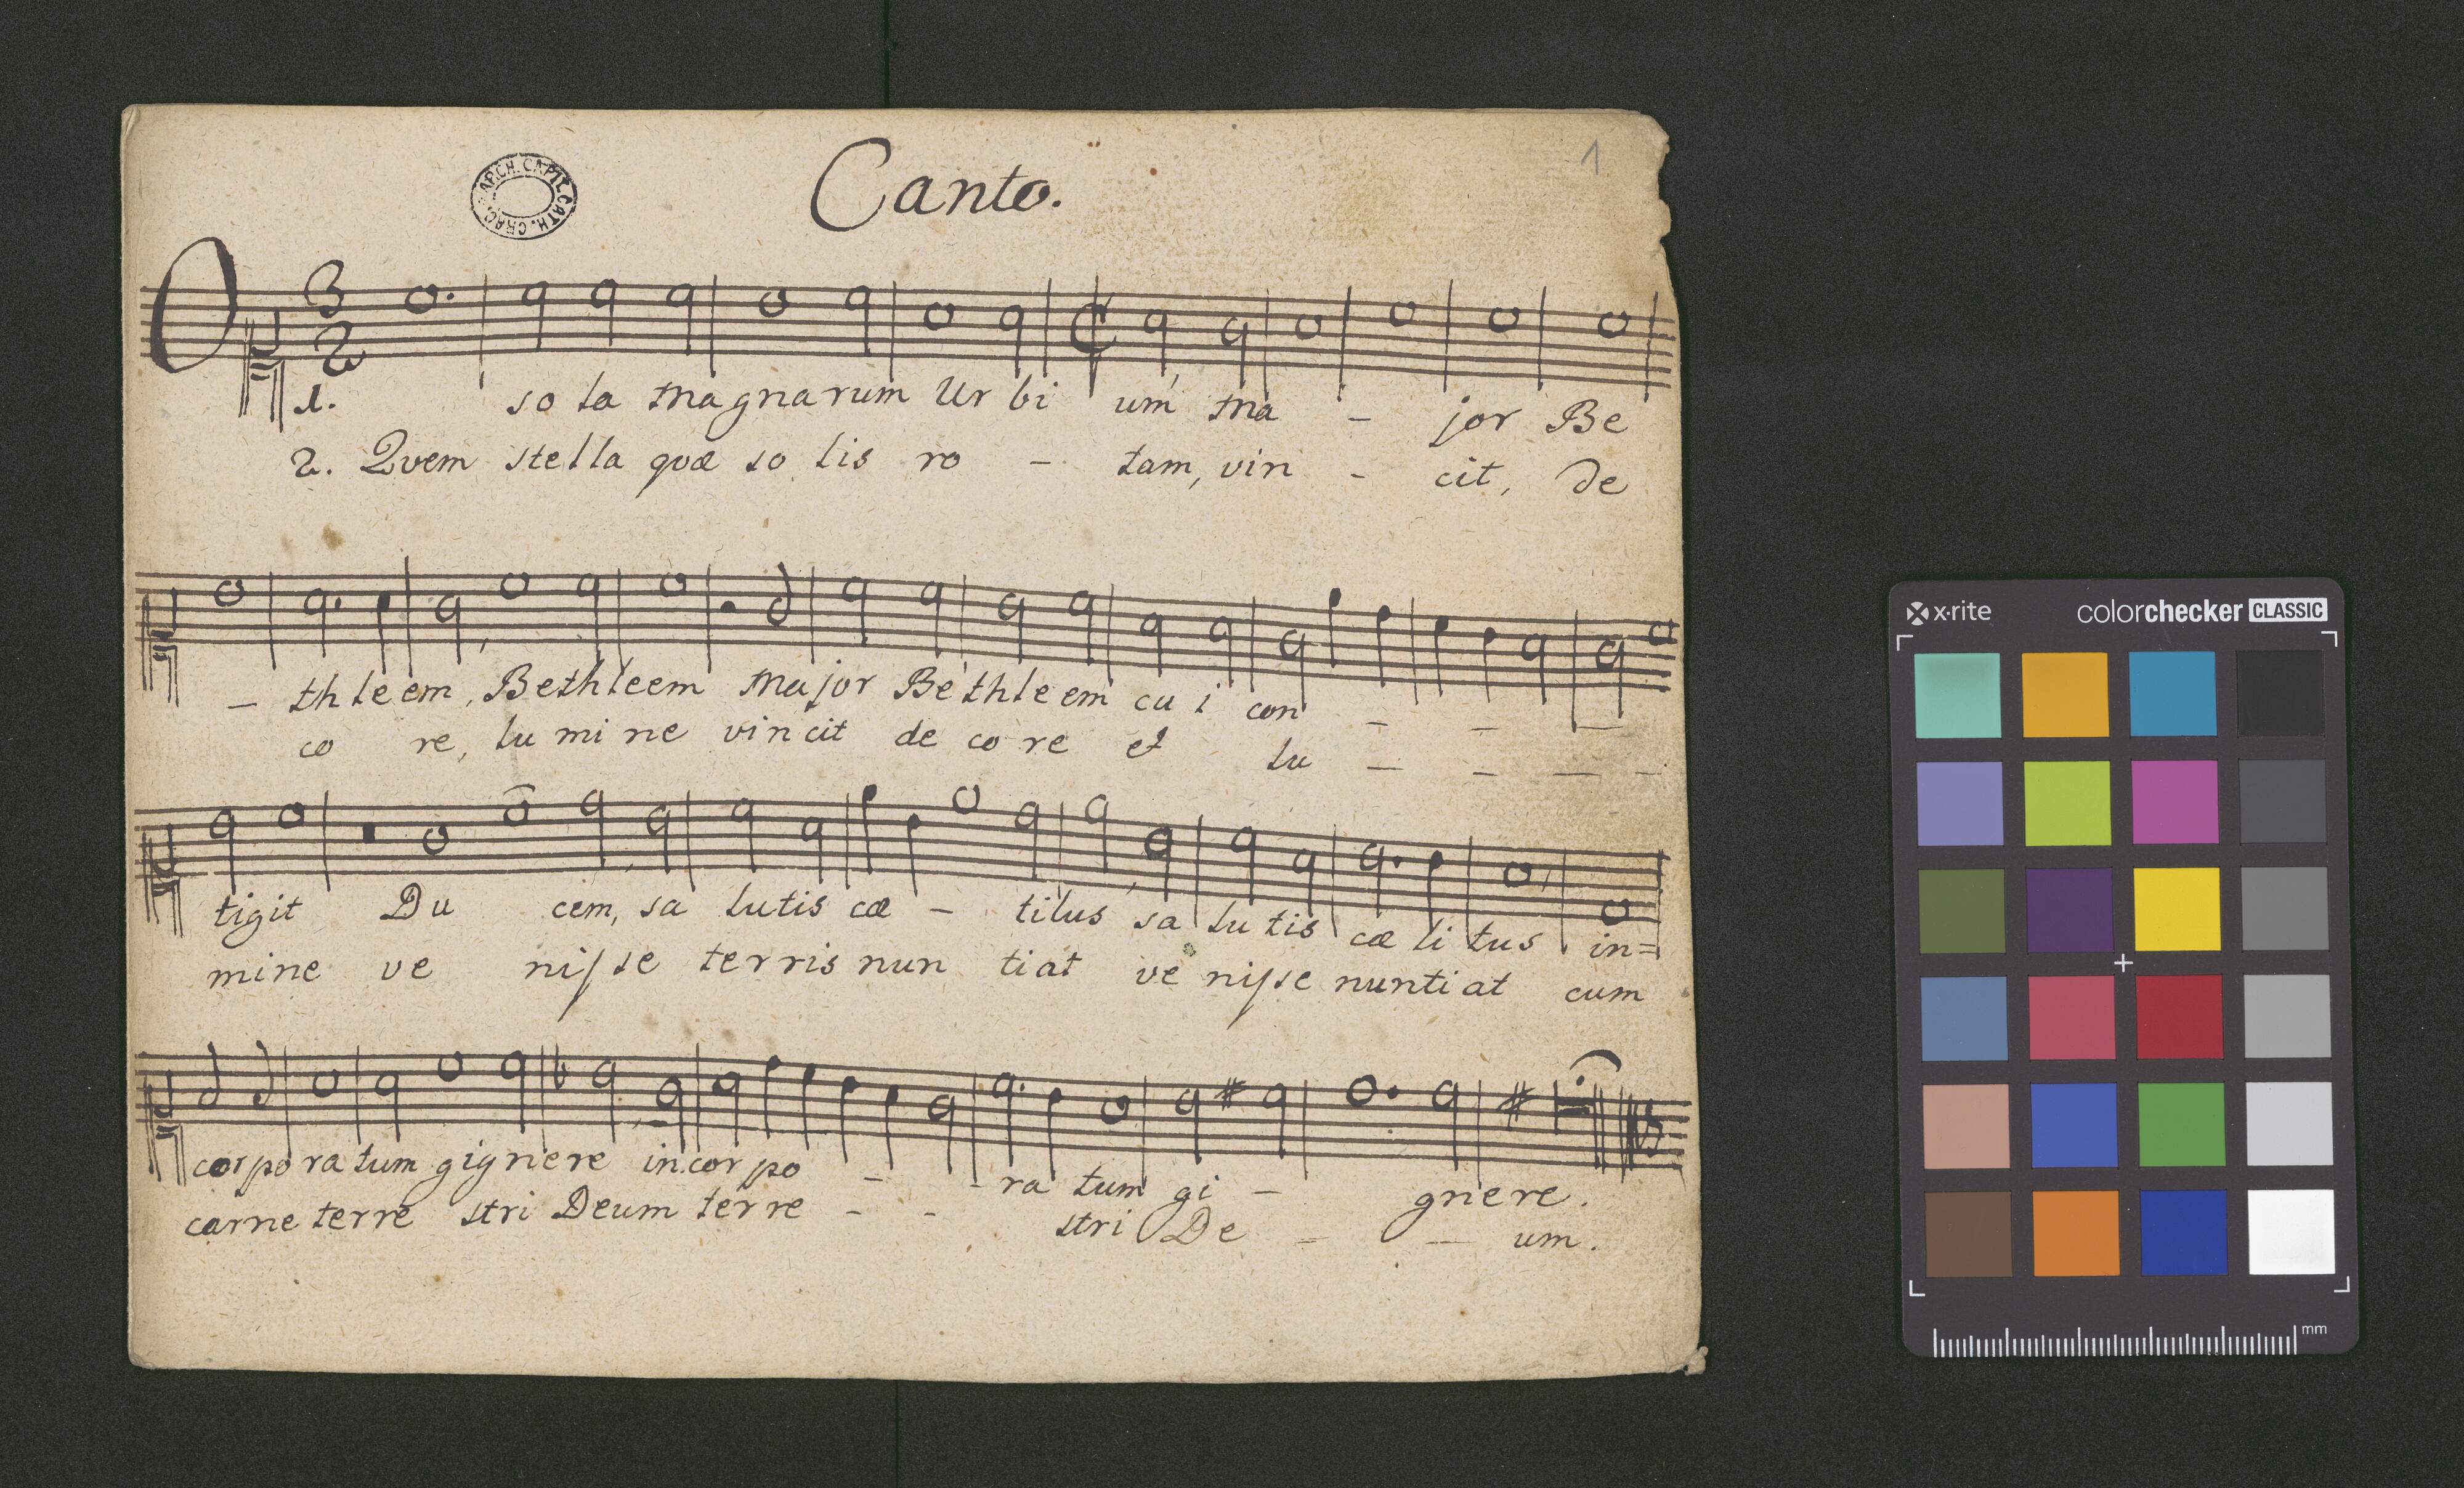 1
Canto.
ARCH. CAPIT. CATH. CRAC.
O
3
2
1. so la Magnarum Ur bi um Ma - jor Be
2. Qvem stella qvæ so lis ro - tam, vin - cit, de
- th le em, Bethleem Major Bethleem cu i con - - -
co re, lu mi ne vincit de co re et lu - - - -
tigit Du cem, sa lutis cæ - titus sa lu tis cæ li tus in=
mine ve nisse terris nun tiat ve nisse nuntiat cum
corpo ra tum gignere incor po - - ra tum gi - gnere.
carne terre stri Deum terre - - stri De - - um.
x·rite colorchecker CLASSIC
mm